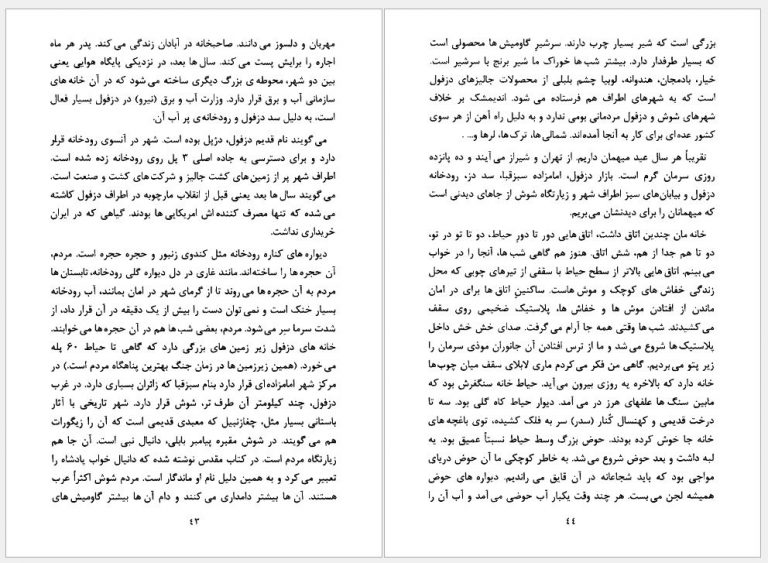 مهربان و دلسوز می دانند. صاحبخانه در آبادان زندگی می کند. پدر هر ماه
اجاره را برایش پست می کند. سال ها بعد، در نزدیکی پایگاه هوایی یعنی
بین دو شهر، محوطه ی بزرگ دیگری ساخته می شود که در آن خانه های
سازمانی آب و برق قرار دارد. وزارت آب و برق (نیرو) در دزفول بسیار فعال
است، به دلیل سد دزفول و رودخانه ی پر آب آن.
می گویند نام قدیم دزفول، دژپل بوده است. شهر در آنسوی رودخانه قرار
دارد و برای دسترسی به جاده اصلی ۳ پل روی رودخانه زده شده است.
اطراف شهر پر از زمین های کشت جالیز و شرکت های کشت و صنعت است.
می گویند سال ها بعد یعنی قبل از انقلاب مارچوبه در اطراف دزفول کاشته
می شده که تنها مصرف کننده اش امریکایی ها بودند. گیاهی که در ایران
خریداری نداشت.
دیواره های کناره رودخانه مثل کندوی زنبور و حجره حجره است. مردم،
آن حجره ها را ساخته اند. مانند غاری در دل دیواره گلی رودخانه، تابستان ها
مردم به آن حجره ها می روند تا از گرمای شهر در امان بمانند، آب رودخانه
بسیار خنک است و نمی توان دست را بیش از یک دقیقه در آن قرار داد، از
شدت سرما سر می شود. مردم، بعضی شب ها هم در آن حجره ها می خوابند.
خانه های دزفول زیر زمین های بزرگی دارد که گاهی تا حیاط ۶۰ پله
می خورد. (همین زیرزمین ها در زمان جنگ بهترین پناهگاه مردم است.) در
مرکز شهر امامزاده ای قرار دارد بنام سبزقبا که زائران بسیاری دارد. در غرب
دزفول، چند کیلومتر آن طرف تر، شوش قرار دارد. شهر تاریخی با آثار
باستانی بسیار مثل، چغازنبیل که معبدی قدیمی است که آن را زیگورات
هم می گویند. در شوش مقبره پیامبر بابلی، دانیال نبی است. آن جا هم
زیارتگاه مردم است. در کتاب مقدس نوشته شده که دانیال خواب پادشاه را
تعبیر می کرد و به همین دلیل نام او ماندگار است. مردم شوش اکثراً عرب
هستند. آن ها بیشتر دامداری می کنند و دام آن ها بیشتر گاومیش های
۴۳
بزرگی است که شیر بسیار چرب دارند. سرشیر گاومیش ها محصولی است
که بسیار طرفدار دارد. بیشتر شب ها خوراک ما شیر برنج با سرشیر است.
خیار، بادمجان، هندوانه، لوبیا چشم بلبلی از محصولات جالیزهای دزفول
است که به شهرهای اطراف هم فرستاده می شود. اندیمشک بر خلاف
شهرهای شوش و دزفول مردمانی بومی ندارد و به دلیل راه آهن از هر سوی
کشور عده ای برای کار به آنجا آمده اند. شمالی ها، ترک ها، لرها و... .
تقریباً هر سال عید میهمان داریم. از تهران و شیراز می آیند و ده پانزده
روزی سرمان گرم است. بازار دزفول، امامزاده سبزقبا، سد دز، رودخانه
دزفول و بیابان های سبز اطراف شهر و زیارتگاه شوش از جاهای دیدنی است
که میهمانان را برای دیدنشان می بریم.
خانه مان چندین اتاق داشت، اتاق هایی دور تا دور حیاط، دو تا تو در تو،
دو تا هم جدا از هم، شش اتاق. هنوز هم گاهی شب ها، آنجا را در خواب
می بینم. اتاق هایی بالاتر از سطح حیاط با سقفی از تیرهای چوبی که محل
زندگی خفاش های کوچک و موش هاست. ساکنین اتاق ها برای در امان
ماندن از افتادن موش ها و خفاش ها، پلاستیک ضخیمی روی سقف
می کشیدند. شب ها وقتی همه جا آرام می گرفت. صدای خش خش داخل
پلاستیک ها شروع می شد و ما از ترس افتادن آن جانوران موذی سرمان را
زیر پتو می بردیم. گاهی من فکر می کردم ماری لابلای سقف میان چوب ها
خانه دارد که بالاخره یه روزی بیرون می آید. حیاط خانه سنگفرش بود که
مابین سنگ ها علفهای هرز در می آمد. دیوار حیاط کاه گلی بود. سه تا
درخت قدیمی و کهنسال کُنار (سدر) سر به فلک کشیده، توی باغچه های
خانه جا خوش کرده بودند. حوض بزرگ وسط حیاط نسبتاً عمیق بود. یه
لبه داشت و بعد حوض شروع می شد. به خاطر کوچکی ما آن حوض دریای
مواجی بود که باید شجاعانه در آن قایق می راندیم. دیواره های حوض
همیشه لجن می بست. هر چند وقت یکبار آب حوضی می آمد و آب آن را
۴۴